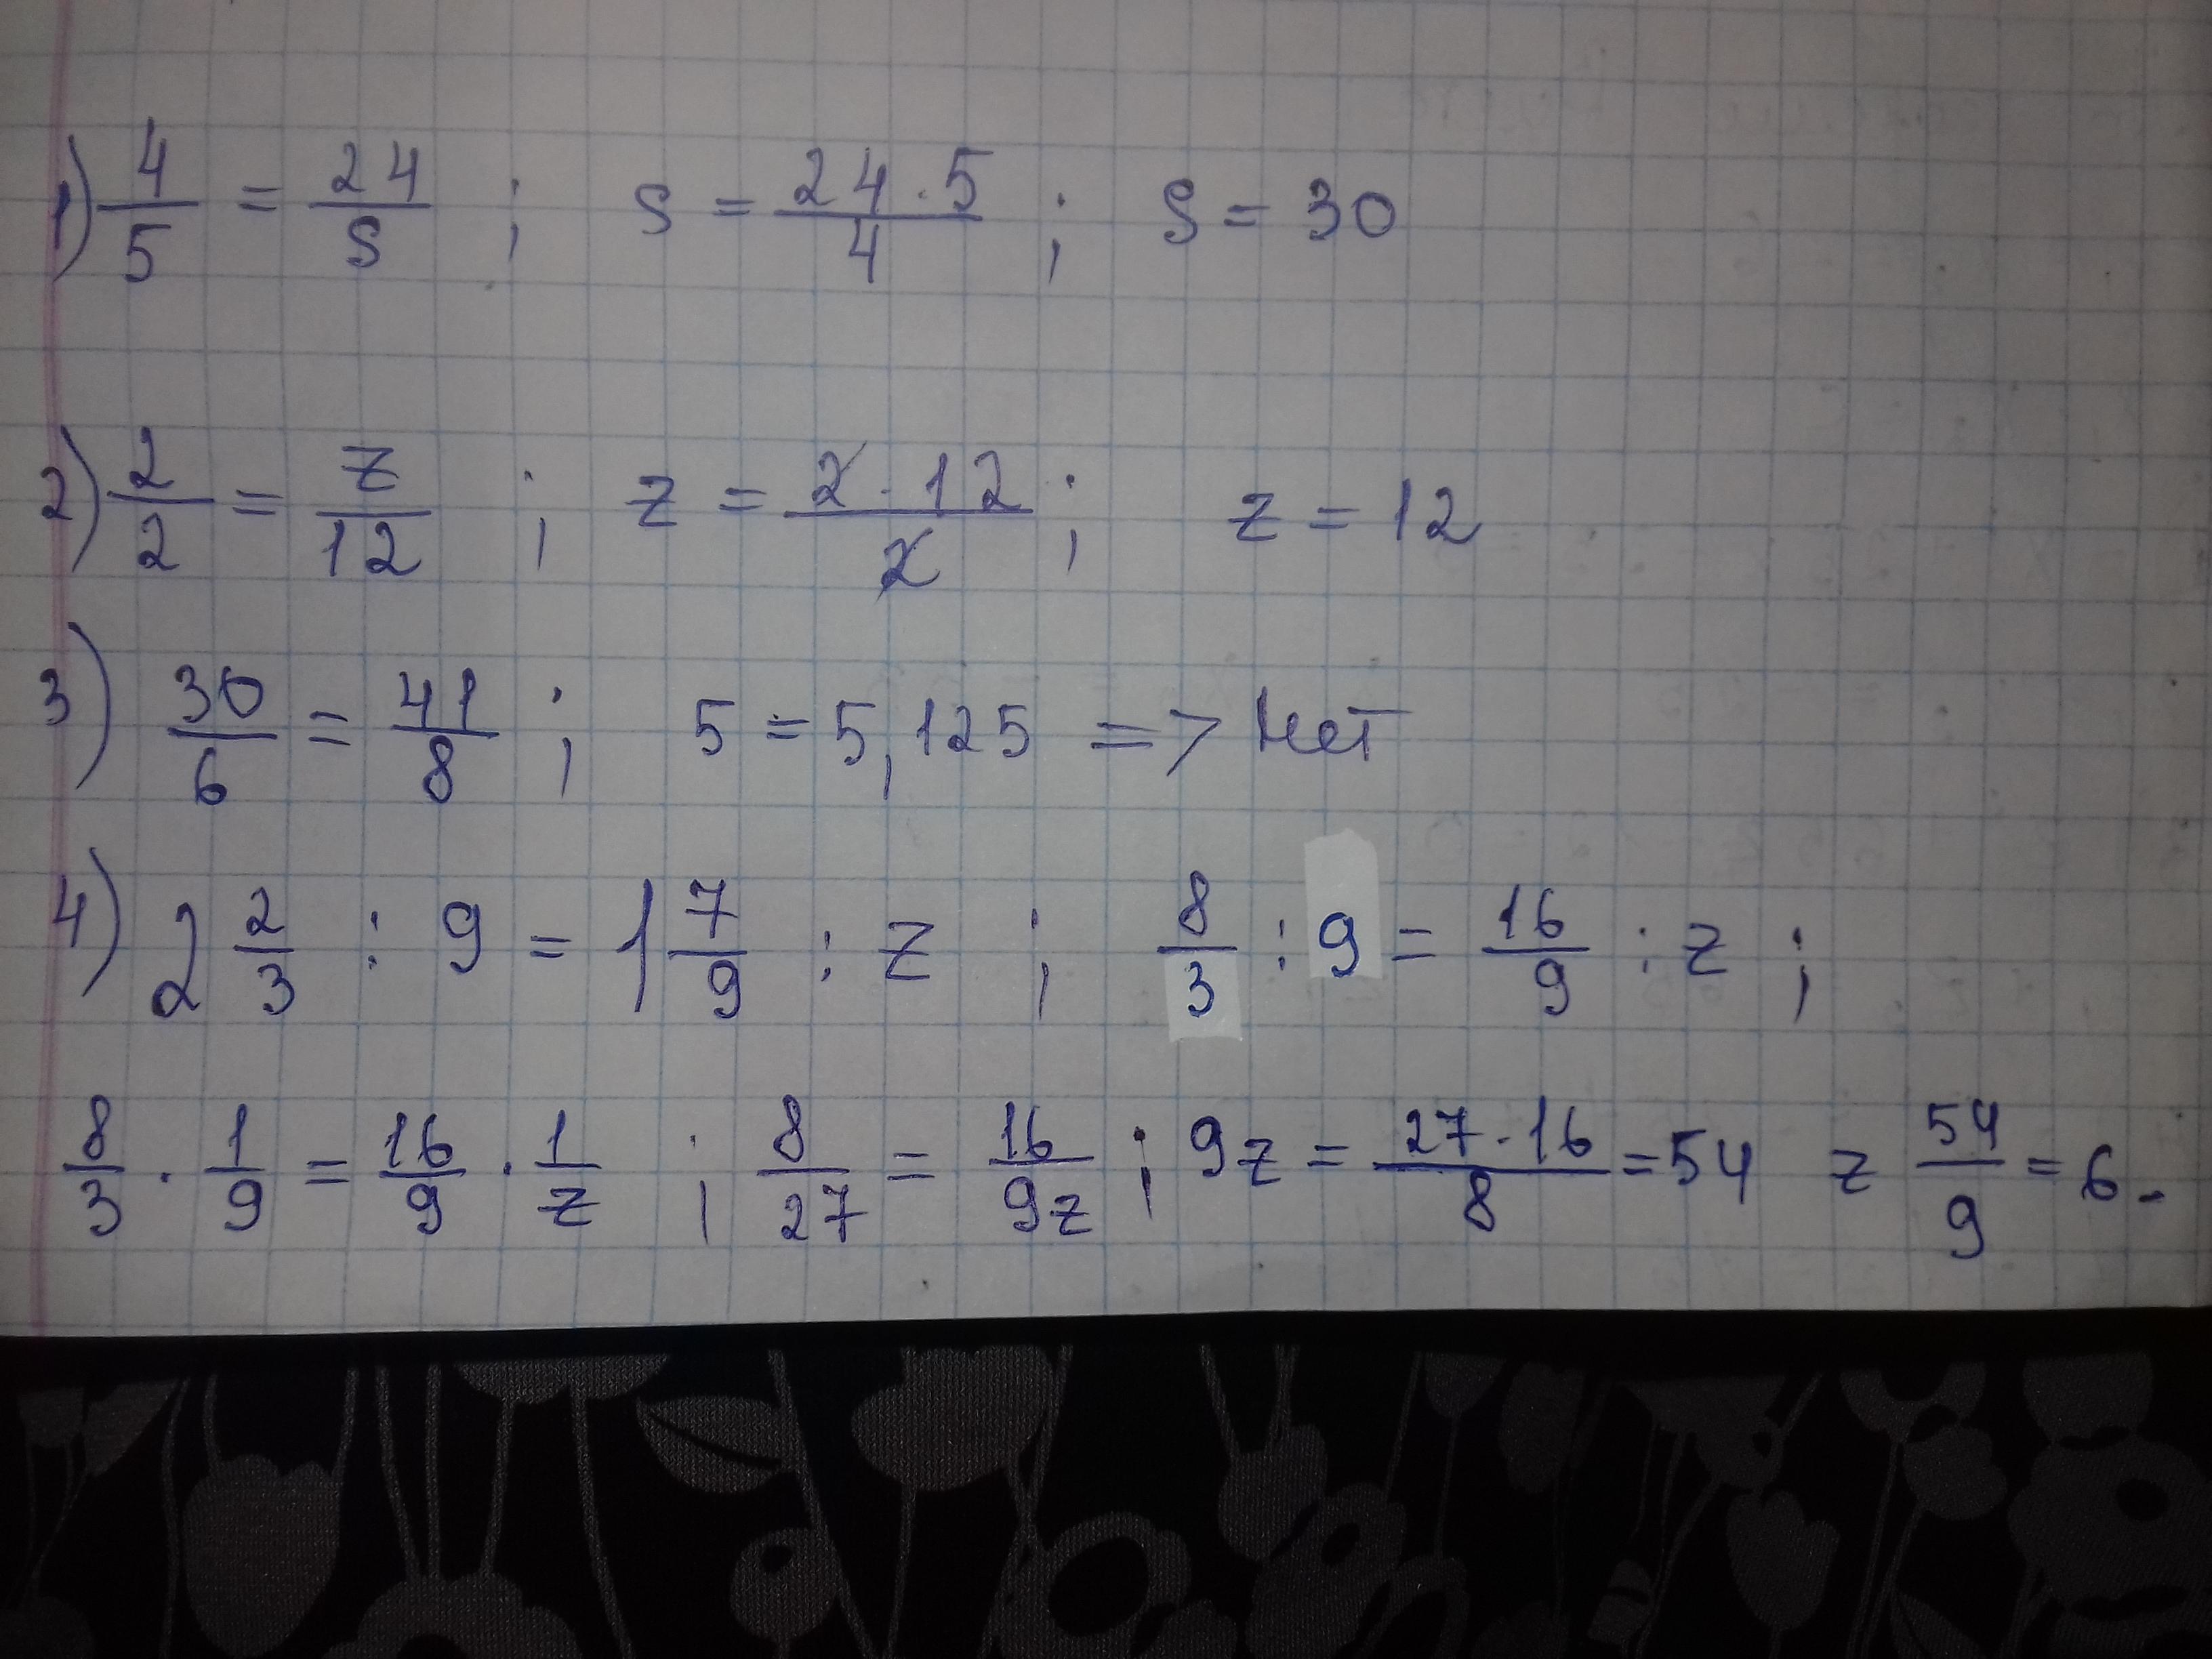 1) 4/5 = 24/S ; S = 24·5/4 ; S = 30
2) 2/2 = z/12 ; z = 2·12/2 ; z = 12
3) 30/6 = 41/8 ; 5 = 5,125 => Нет
4) 2 2/3 : 9 = 1 7/9 : z ; 8/3 : 9 = 16/9 : z ;
8/3 · 1/9 = 16/9 · 1/z ; 8/27 = 16/9z ; 9z = 27·16/8 = 54 z 54/9 = 6.